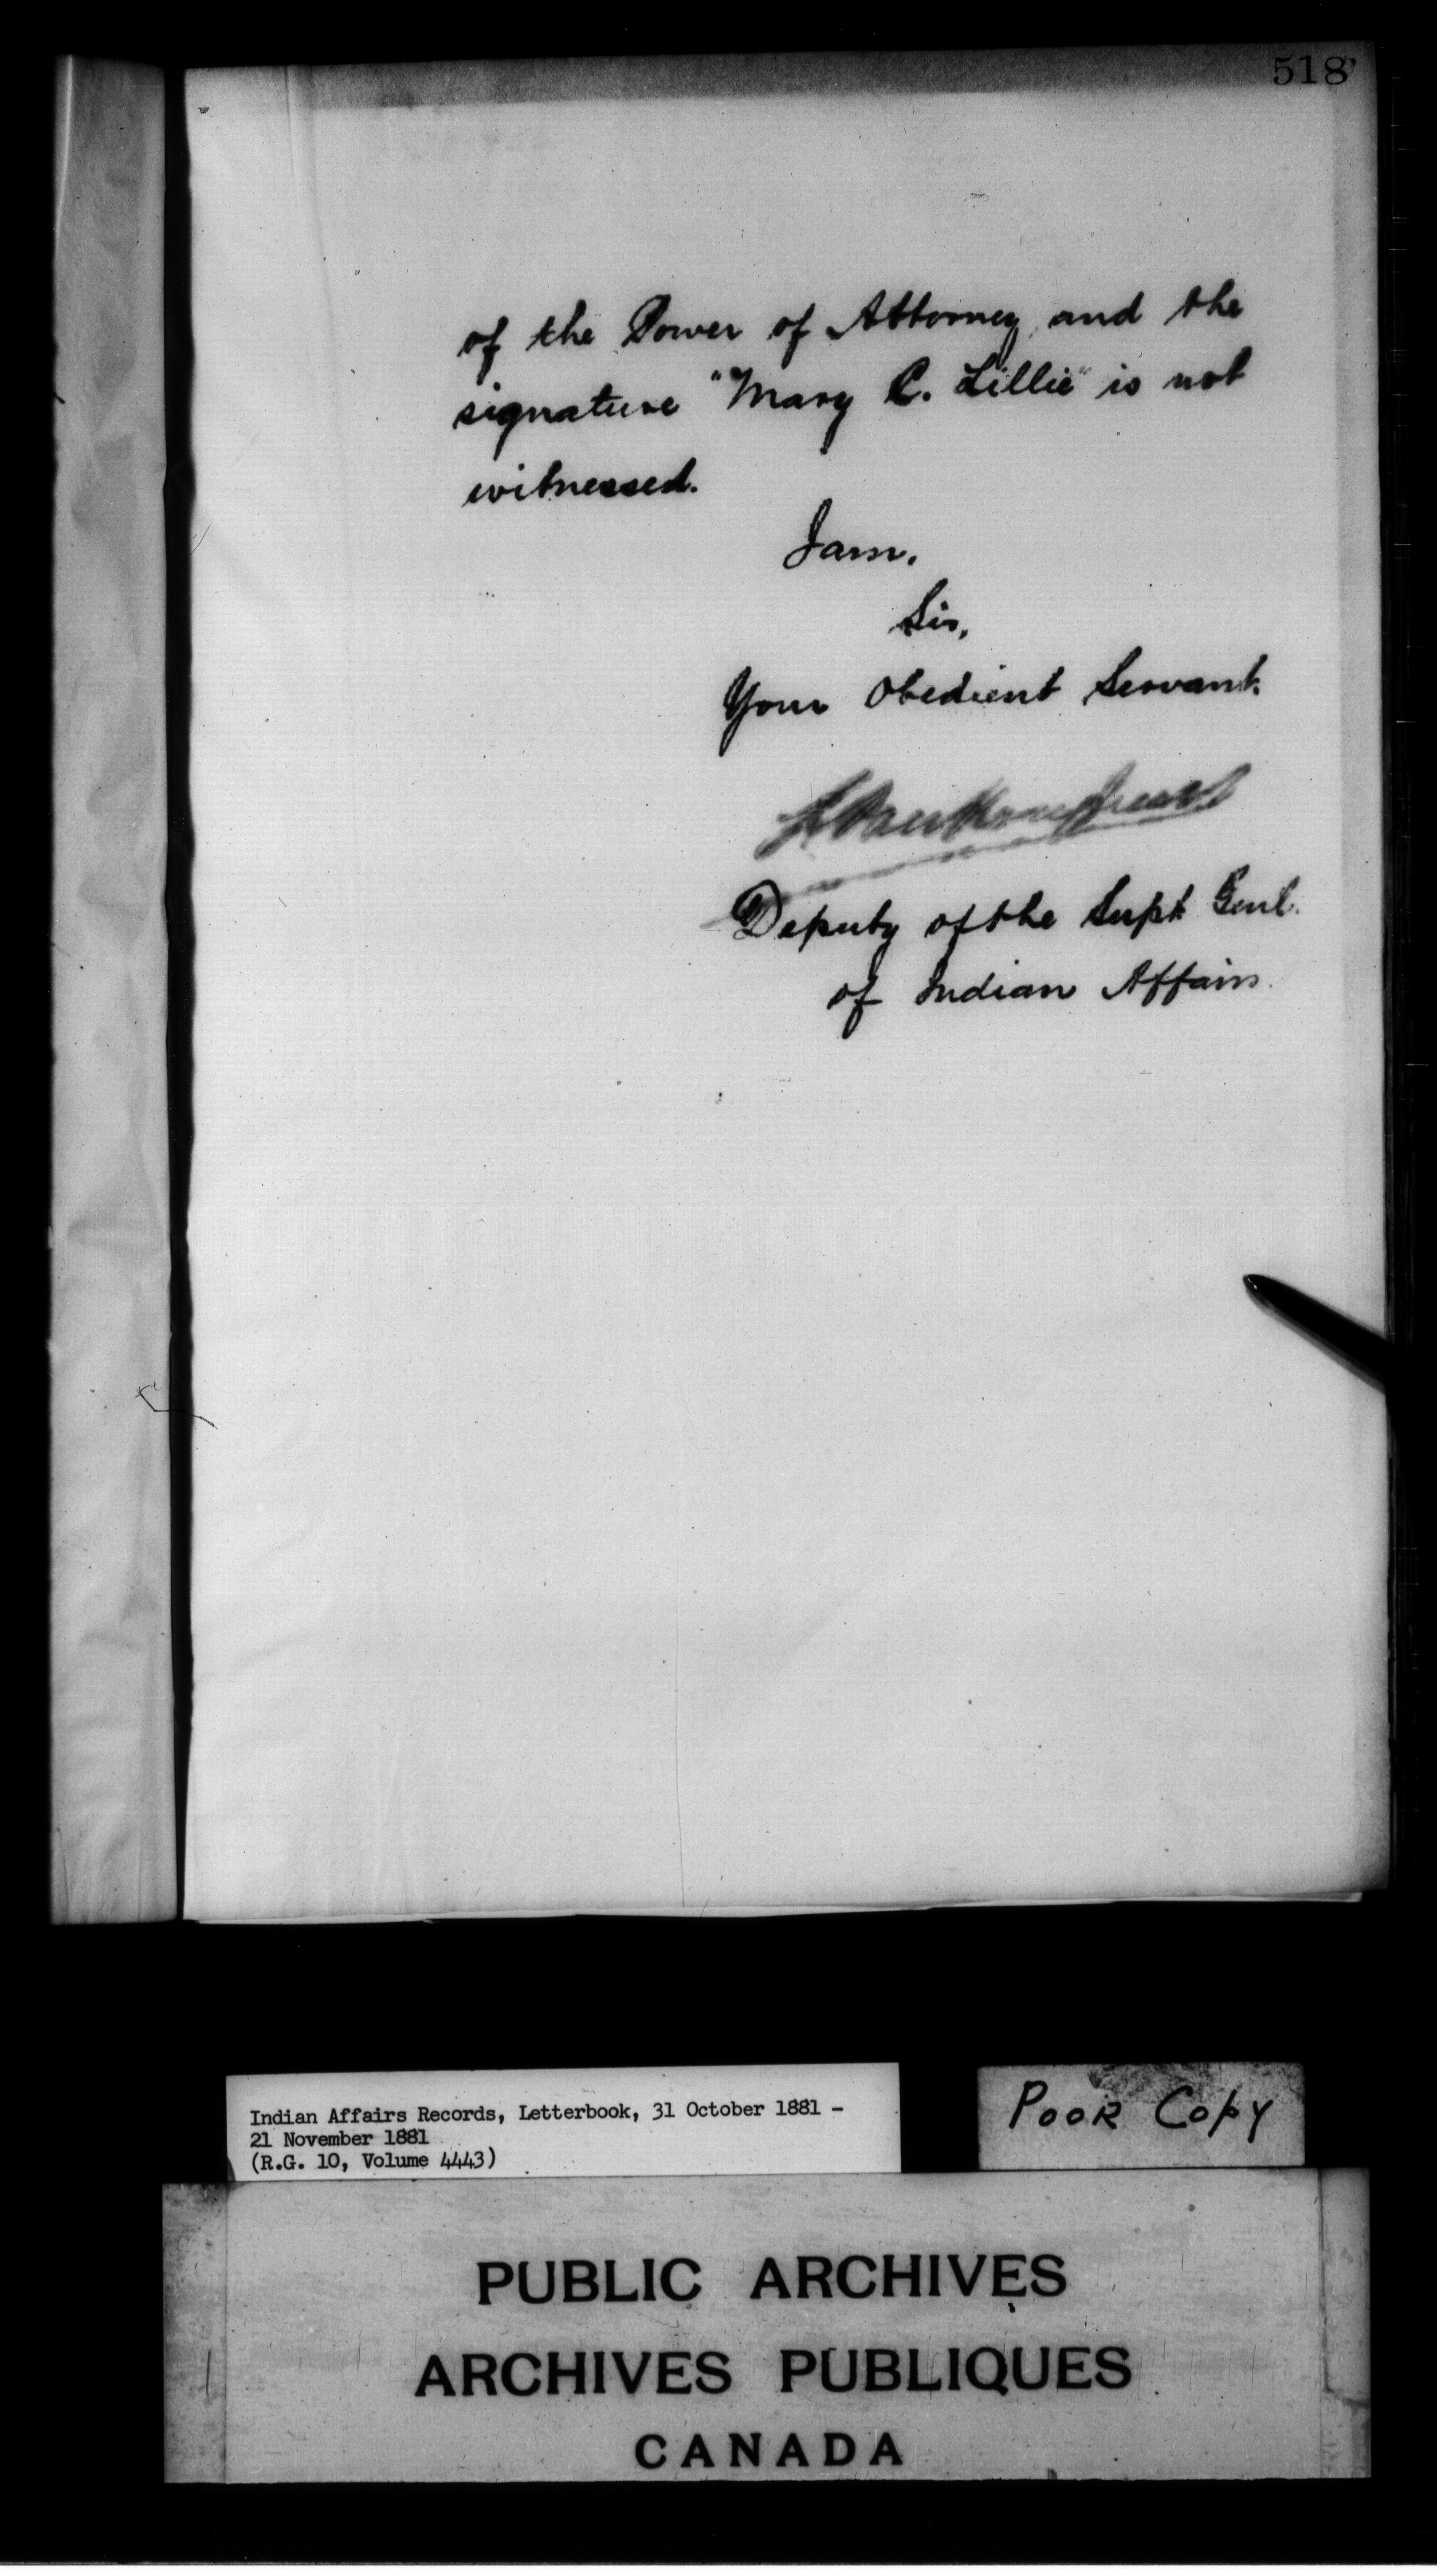 518
of the Power of Attorney, and the
signature "Mary C. Lillie" is not
witnessed.
I am,
Sir,
Your Obedient Servant.
L Vankoughnet
Deputy of the Supt Genl.
of Indian Affairs.
Indian Affairs Records, Letterbook, 31 October 1881 -
21 November 1881
(R.G. 10, Volume 4443)
POOR COPY
PUBLIC ARCHIVES
ARCHIVES PUBLIQUES
CANADA